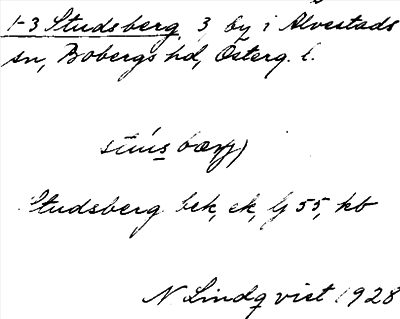 1-3 Studsberg 3, by i Alvestads
sn, Bobergs hd, Österg. l.
Studsberg bek, ek, Lg 55, kb
N Lindqvist 1928